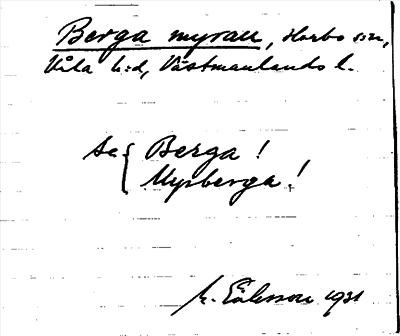 Berga myran, Harbo sn,
Våla h:d, Västmanlands l.
Se { Berga!
Myrberga!
1931